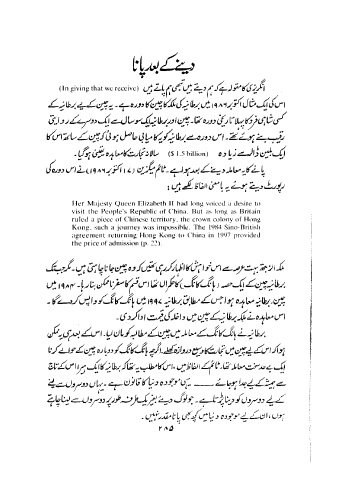 دینے کے بعد پانا
انگریزی کا مقولہ ہے کہ ہم دیتے ہیں تبھی ہم پاتے ہیں (In giving that we receive)
اس کی ایک مثال اکتوبر ۱۹۸۶ میں برطانیہ کی ملکہ کا چین کا دورہ ہے۔ یہ چین کے لیے برطانیہ کے
کسی شاہی فرد کا پہلا تاریخی دورہ تھا۔ چین اور برطانیہ ایک سو سال سے ایک دوسرے کے روایتی
رقیب بنے ہوئے تھے۔ اس دورہ سے برطانیہ کو یہ کامیابی حاصل ہوئی کہ چین کے ساتھ اس کا
ایک بلین ڈالر سے زیادہ ($ 1.5 billion) سالانہ تجارت کا معاہدہ یقینی ہوگیا۔
پانے کا یہ معاملہ دینے کے بعد ہوا ہے۔ ٹائم میگزین (۱۷ اکتوبر ۱۹۸۶) نے اس دورہ کی
رپورٹ دیتے ہوئے یہ بامعنی الفاظ لکھے ہیں:
Her Majesty Queen Elizabeth II had long voiced a desire to
visit the People's Republic of China. But as long as Britain
ruled a piece of Chinese territory, the crown colony of Hong
Kong, such a journey was impossible. The 1984 Sino-British
agreement returning Hong Kong to China in 1997 provided
the price of admission (p. 22).
ملکہ الزبتھ بہت عرصہ سے اس خواہش کا اظہار کر رہی تھیں کہ وہ چین جانا چاہتی ہیں۔ مگر جب تک
برطانیہ چین کے ایک حصہ (ہانگ کانگ) کا حکمراں تھا اس قسم کا سفر ناممکن بنا رہا۔ ۱۹۸۴ میں
چین۔ برطانیہ معاہدہ ہوا جس کے مطابق برطانیہ ۱۹۹۷ میں ہانگ کانگ کو واپس کر دے گا۔
اس معاہدہ نے ملکہ برطانیہ کے چین میں داخلہ کی قیمت ادا کر دی۔
برطانیہ نے ہانگ کانگ کے معاملہ میں چین کے مطالبہ کو مان لیا۔ اس کے بعد ہی یہ ممکن
ہوا کہ اس کے لیے چین میں تجارت کا وسیع دروازہ کھلے۔ اگرچہ ہانگ کانگ کو دوبارہ چین کے حوالے کرنا
ایک بے حد سخت معاملہ تھا۔ ٹائم کے الفاظ میں، اس کا مطلب یہ تھا کہ برطانیہ کا ایک ہیرا اس کے تاج
سے ہمیشہ کے لیے جدا ہو جائے ــــــ یہی موجودہ دنیا کا قانون ہے۔ یہاں دوسروں سے پانے
کے لیے دوسروں کو دینا پڑتا ہے۔ جو لوگ دیئے بغیر یک طرفہ طور پر دوسروں سے لینا چاہتے
ہوں، ان کے لیے موجودہ دنیا میں کچھ بھی پانا مقدر نہیں۔
۲۸۵